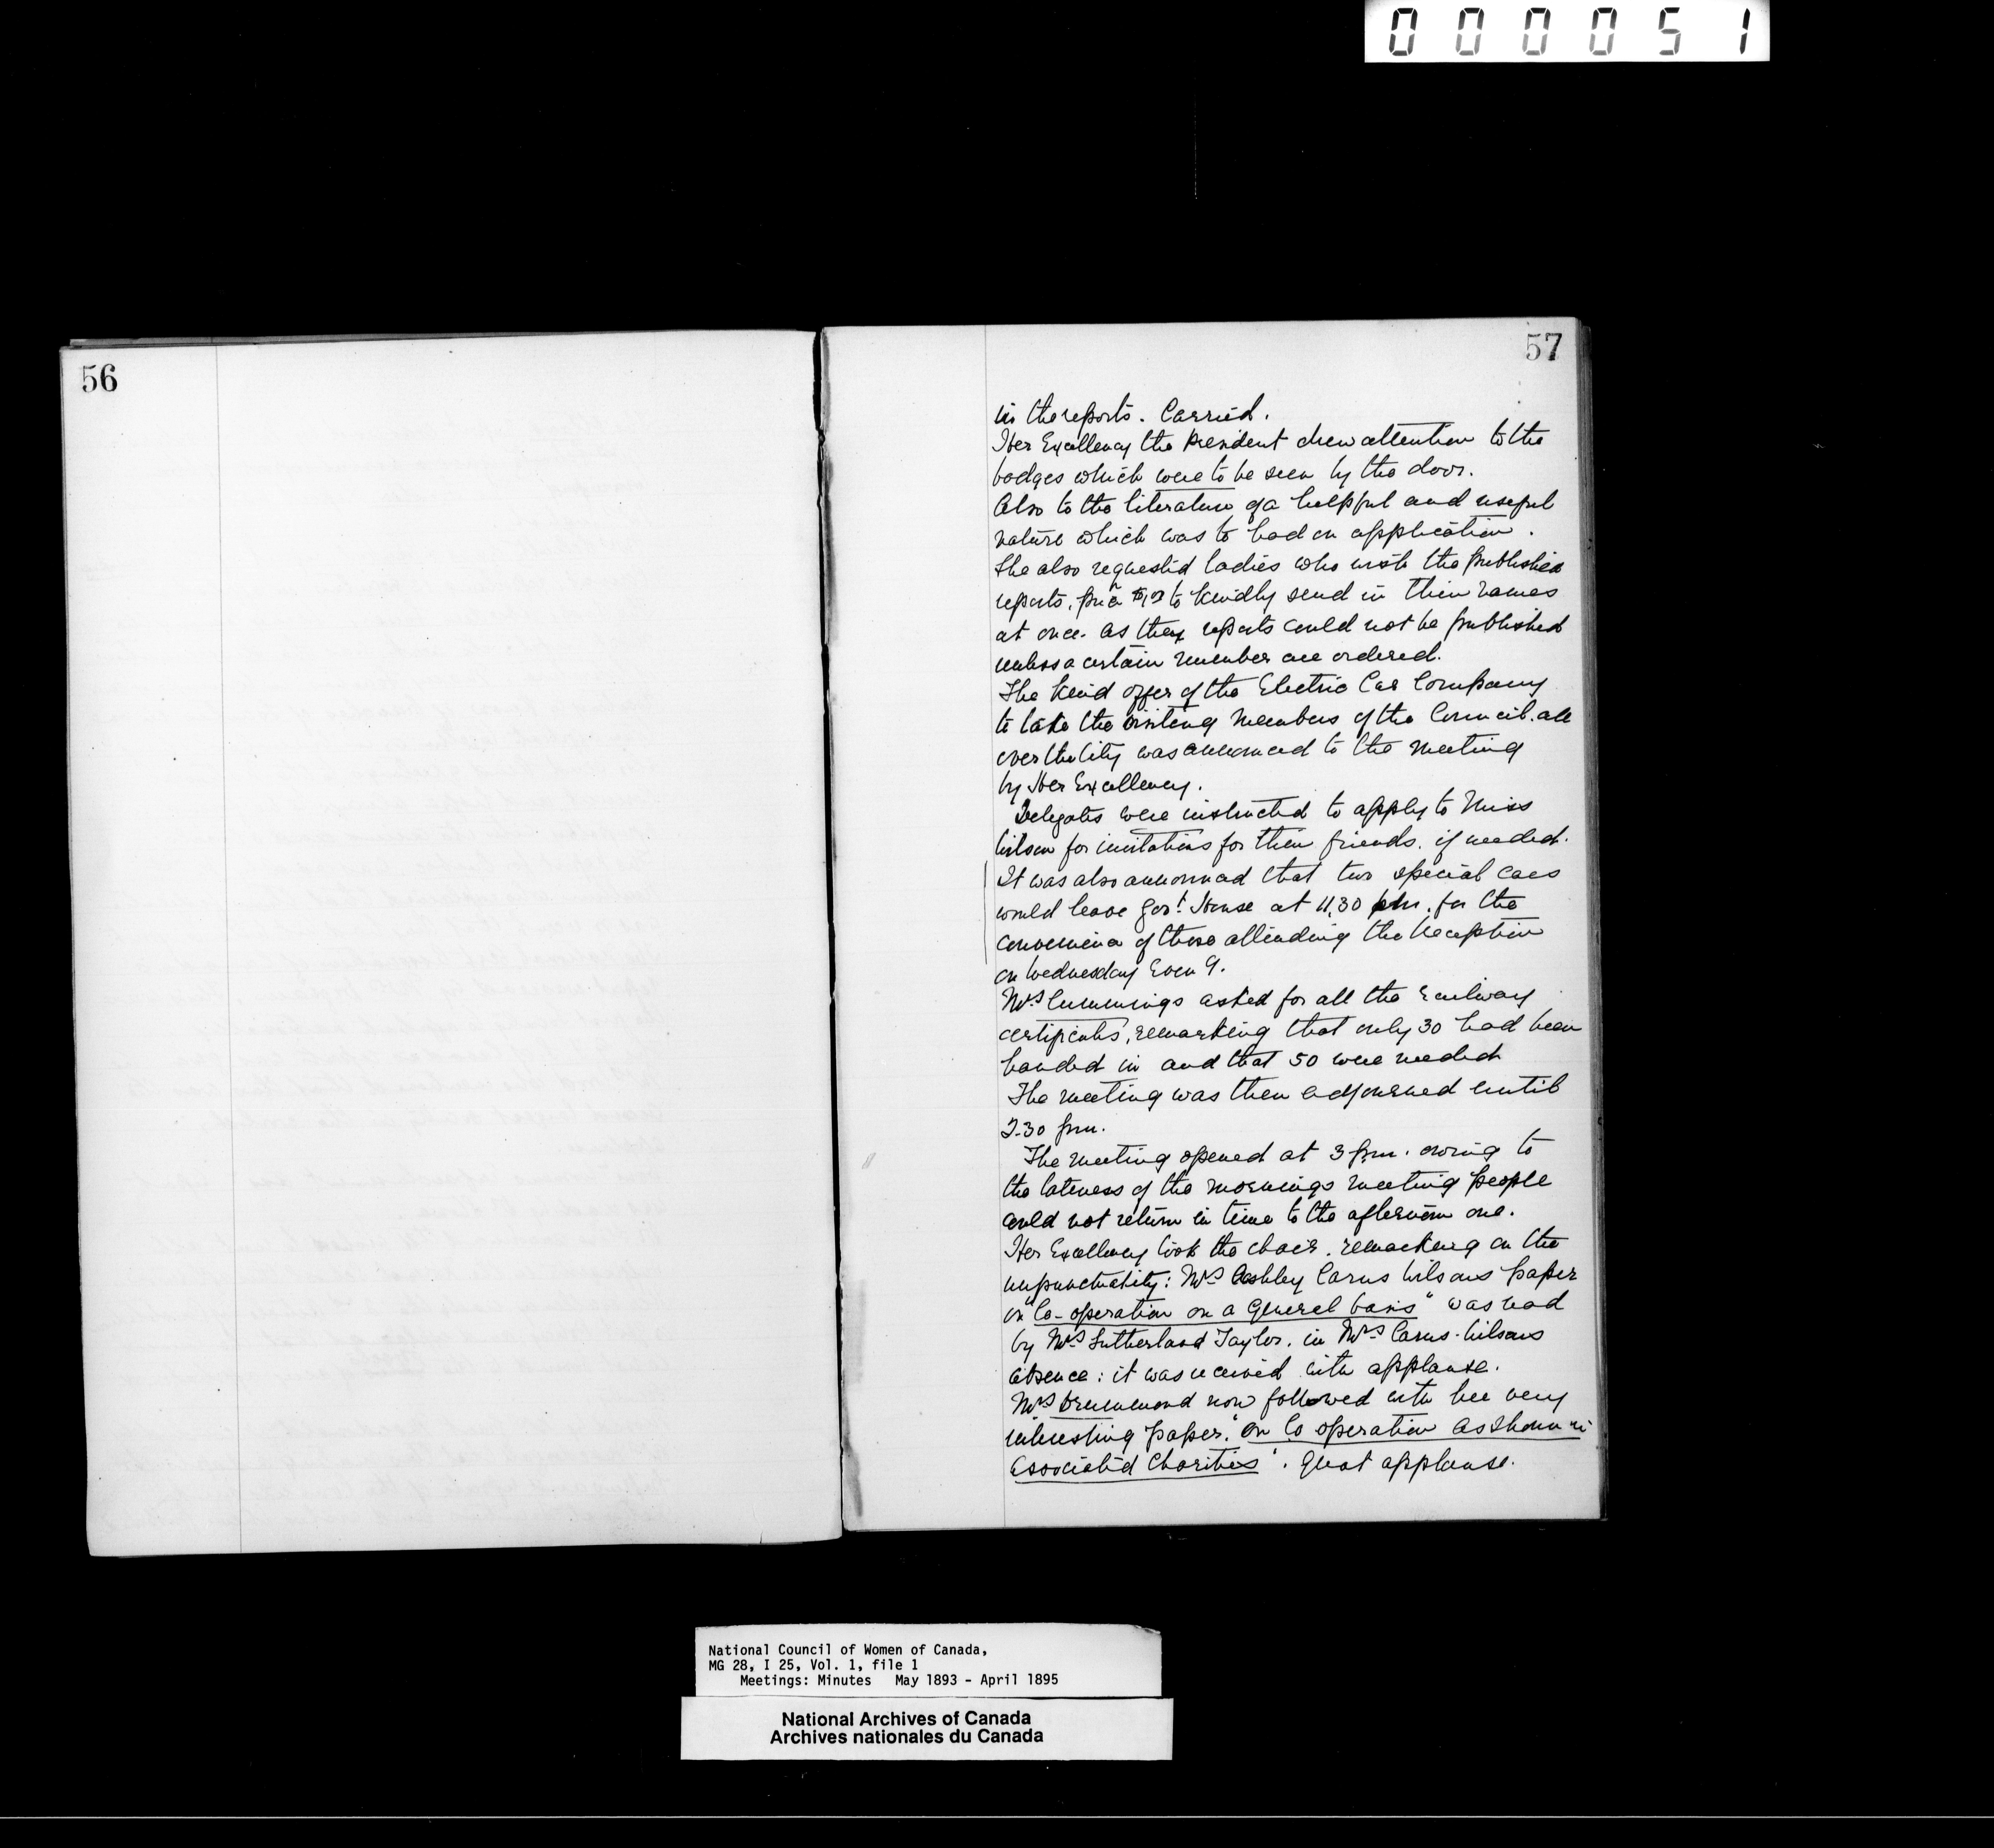 000051
56
57
in the reports. Carried.
Her Excellency the President drew attention to the
badges which were to be seen by the door.
Also to the literature of a helpful and useful
nature which was to had on application.
She also requested ladies who wish the published
reports, price to kindly send in their names
at once. as these reports could not be published
unless a certain number are ordered.
The kind offer of the Electric Car Company
to take the visiting members of the Council all
over the City was announced to the meeting
by Her Excellency.
Delegates were instructed to apply to Miss
Wilson for invitations for their friends. if needed.
It was also announced that two special cars
would leave Govt. House at 11,30 pm. for the
convenience of those attending the Reception
on Wednesday Eveng.
Mrs Cummings asked for all the railway
certificates, remarking that only 30 had been
handed in and that 50 were needed
The meeting was then adjourned until
2-30 pm.
The meeting opened at 3 p.m. owing to
the lateness of the mornings meeting people
could not return in time to the afternoon one.
Her Excellency took the chair. remarking on the
unpunctuality: Mrs Ashley Carus Wilsons paper
on "Co-operation on a General basis" was read
by Mrs Sutherland Taylor. in Mrs Carus-Wilsons
absence: it was received with applause.
Mrs Drummond now followed with her very
interesting paper. "On Co operation as shown in
Associated Charities". Great applause.
National Council of Women of Canada,
MG 28, I 25, Vol. 1, file 1
Meetings: Minutes May 1893 - April 1895
National Archives of Canada
Archives nationales du Canada